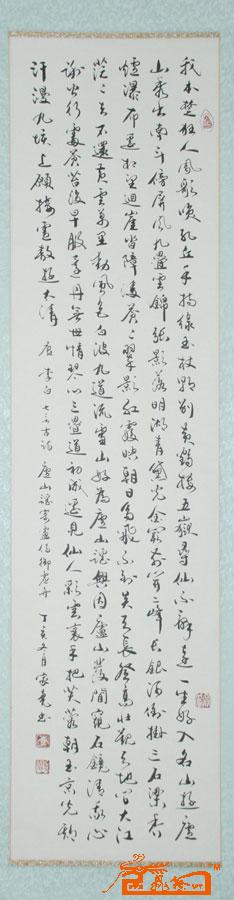 我本楚狂人鳳歌笑孔丘手持綠玉杖朝別黃鶴樓五嶽尋仙不辭遠一生好入名山遊廬
山秀出南斗傍屏風九疊雲錦張影落明湖青黛光金闕前開二峰長銀河倒掛三石梁香
爐瀑布遙相望迴崖沓障凌蒼々翠影紅霞映朝日鳥飛不到吳天長登高壯觀天地間大江
茫々去不還黃雲萬里動風色白波九道流雪山好為廬山謠興因廬山發閒窺石鏡清我心
謝公行處蒼苔沒早服還丹無世情琴心三疊道初成遙見仙人彩雲裏手把芙蓉朝玉京先期
汗漫九垓上願接盧敖遊太清 唐 李白 七言古詩 廬山謠寄盧侍御虛舟 丁亥五月 家書